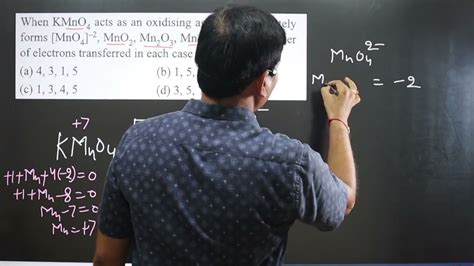 When KMnO4 acts as an oxidising ag tely
forms [MnO4]-2, MnO2, Mn2O3, Mn er
of electrons transferred in each case
(a) 4, 3, 1, 5 (b) 1, 5,
(c) 1, 3, 4, 5 (d) 3, 5,
MnO4 2-
M = -2
+7
KMnO4
+1+Mn+4(-2)=0
+1+Mn-8=0
Mn-7=0
Mn=+7